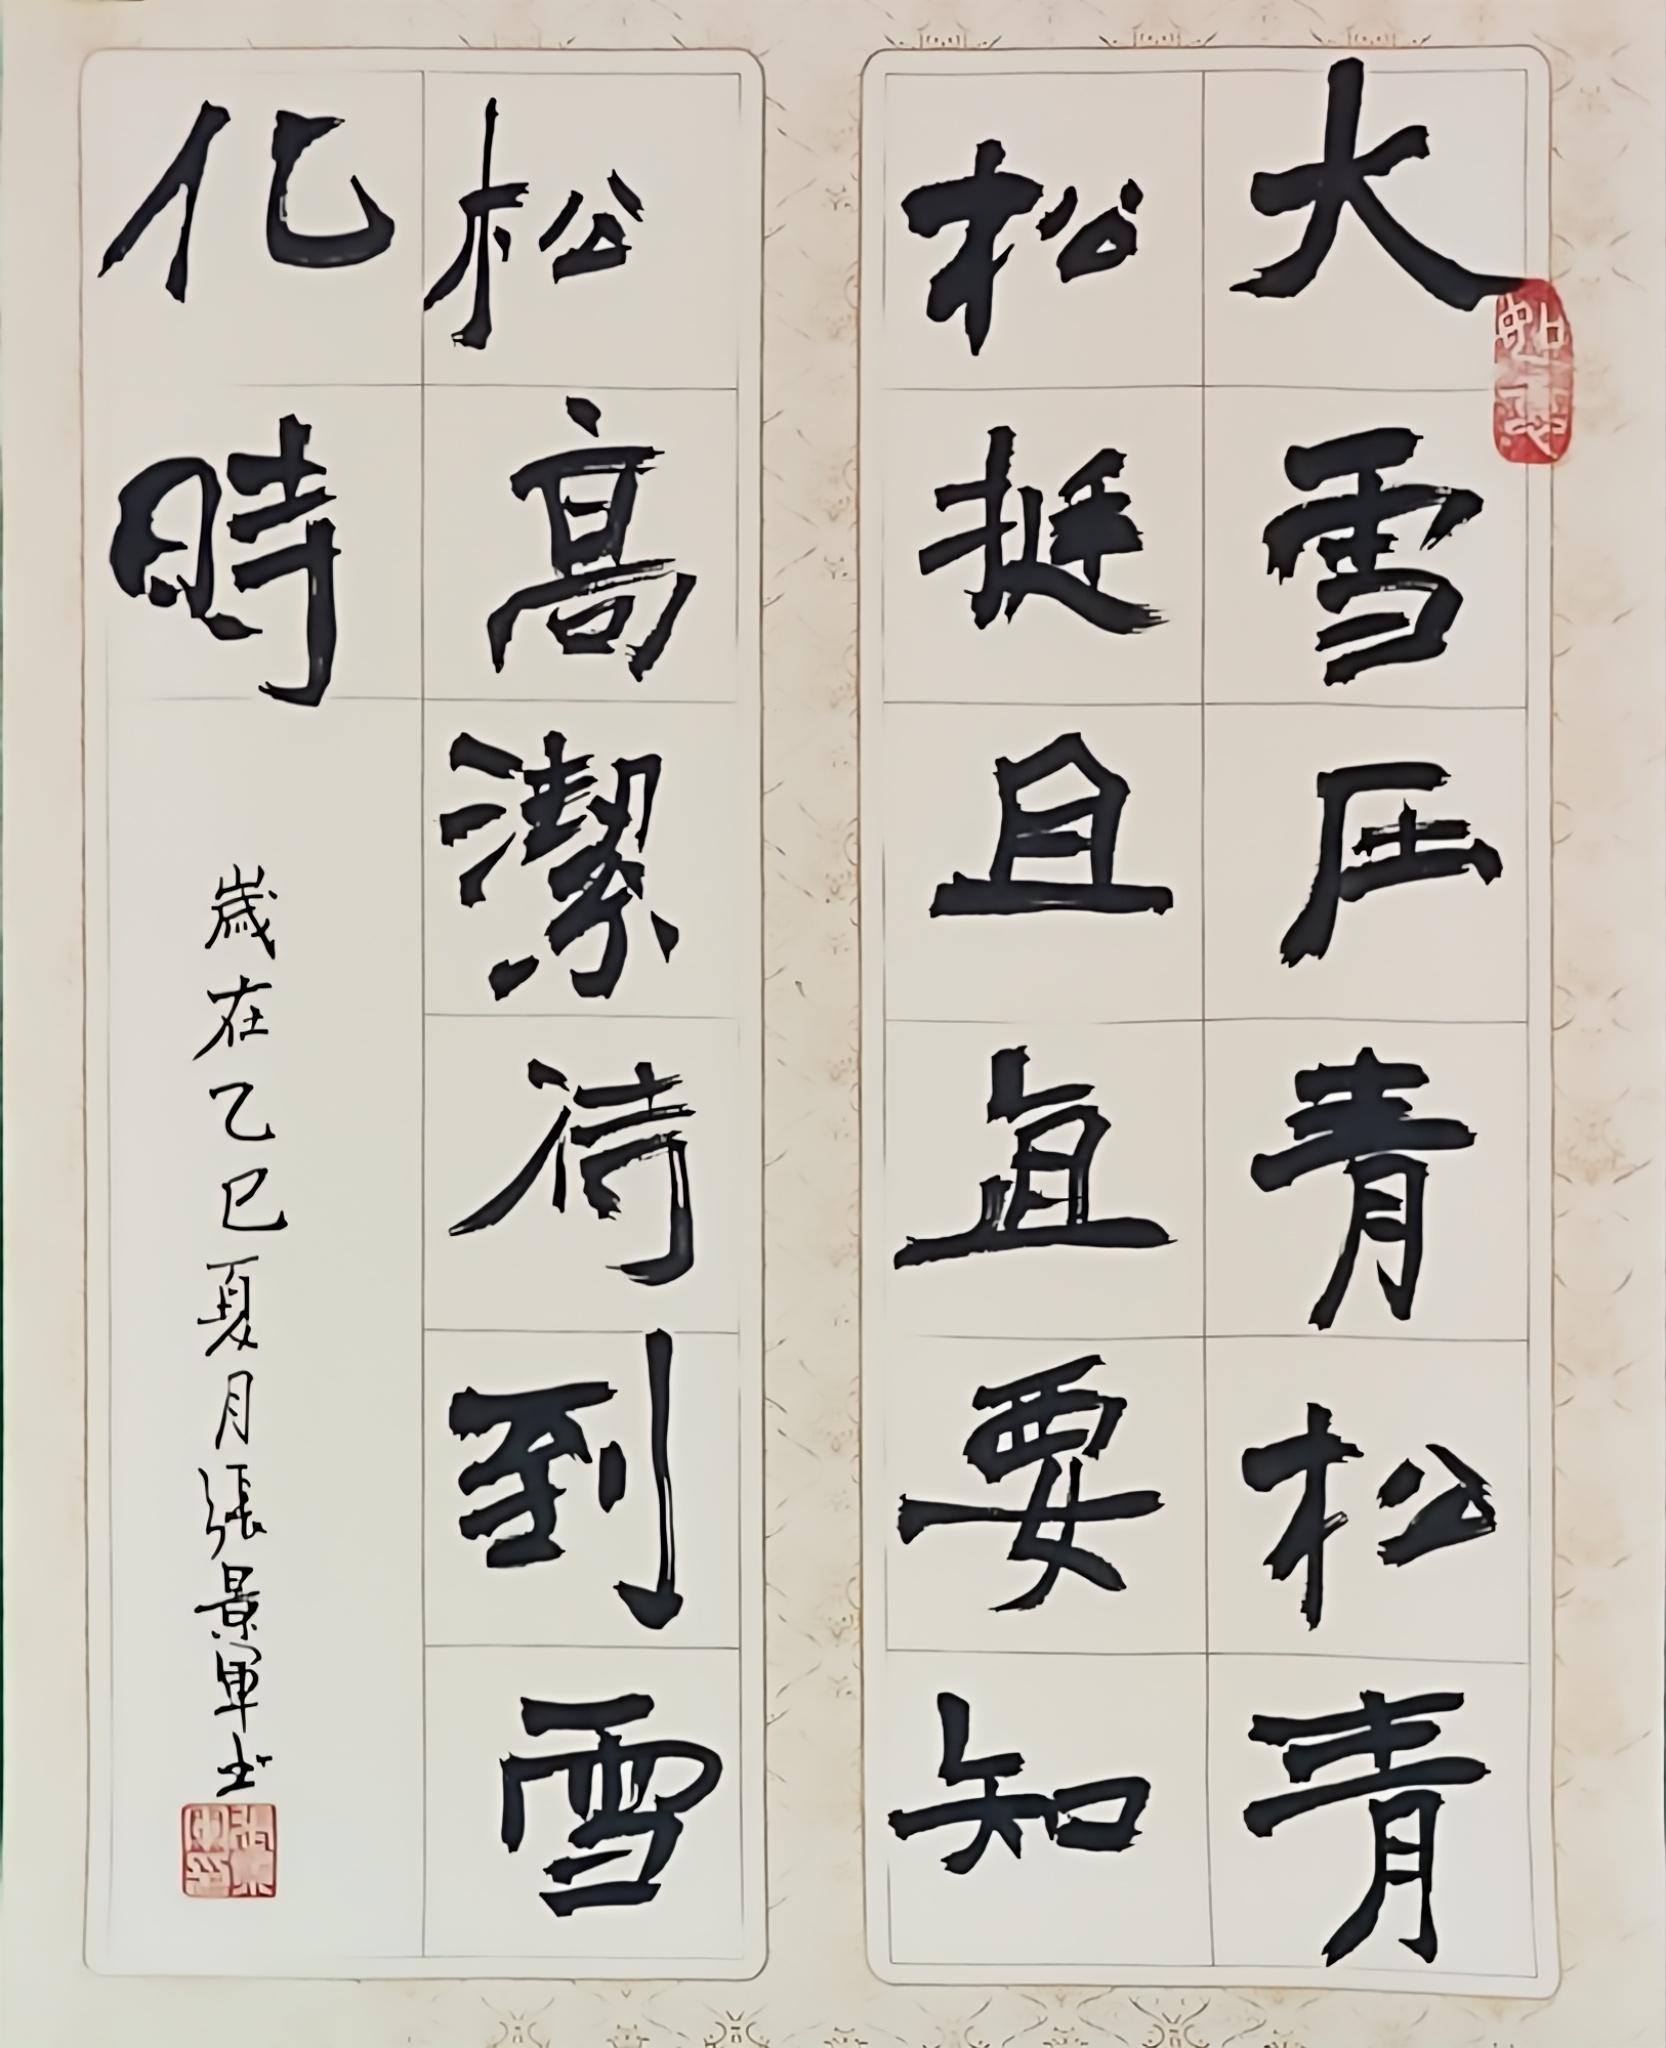 大雪压青松青
松挺且直要知
松高潔待到雪
化時
歲在乙巳夏月張景軍书